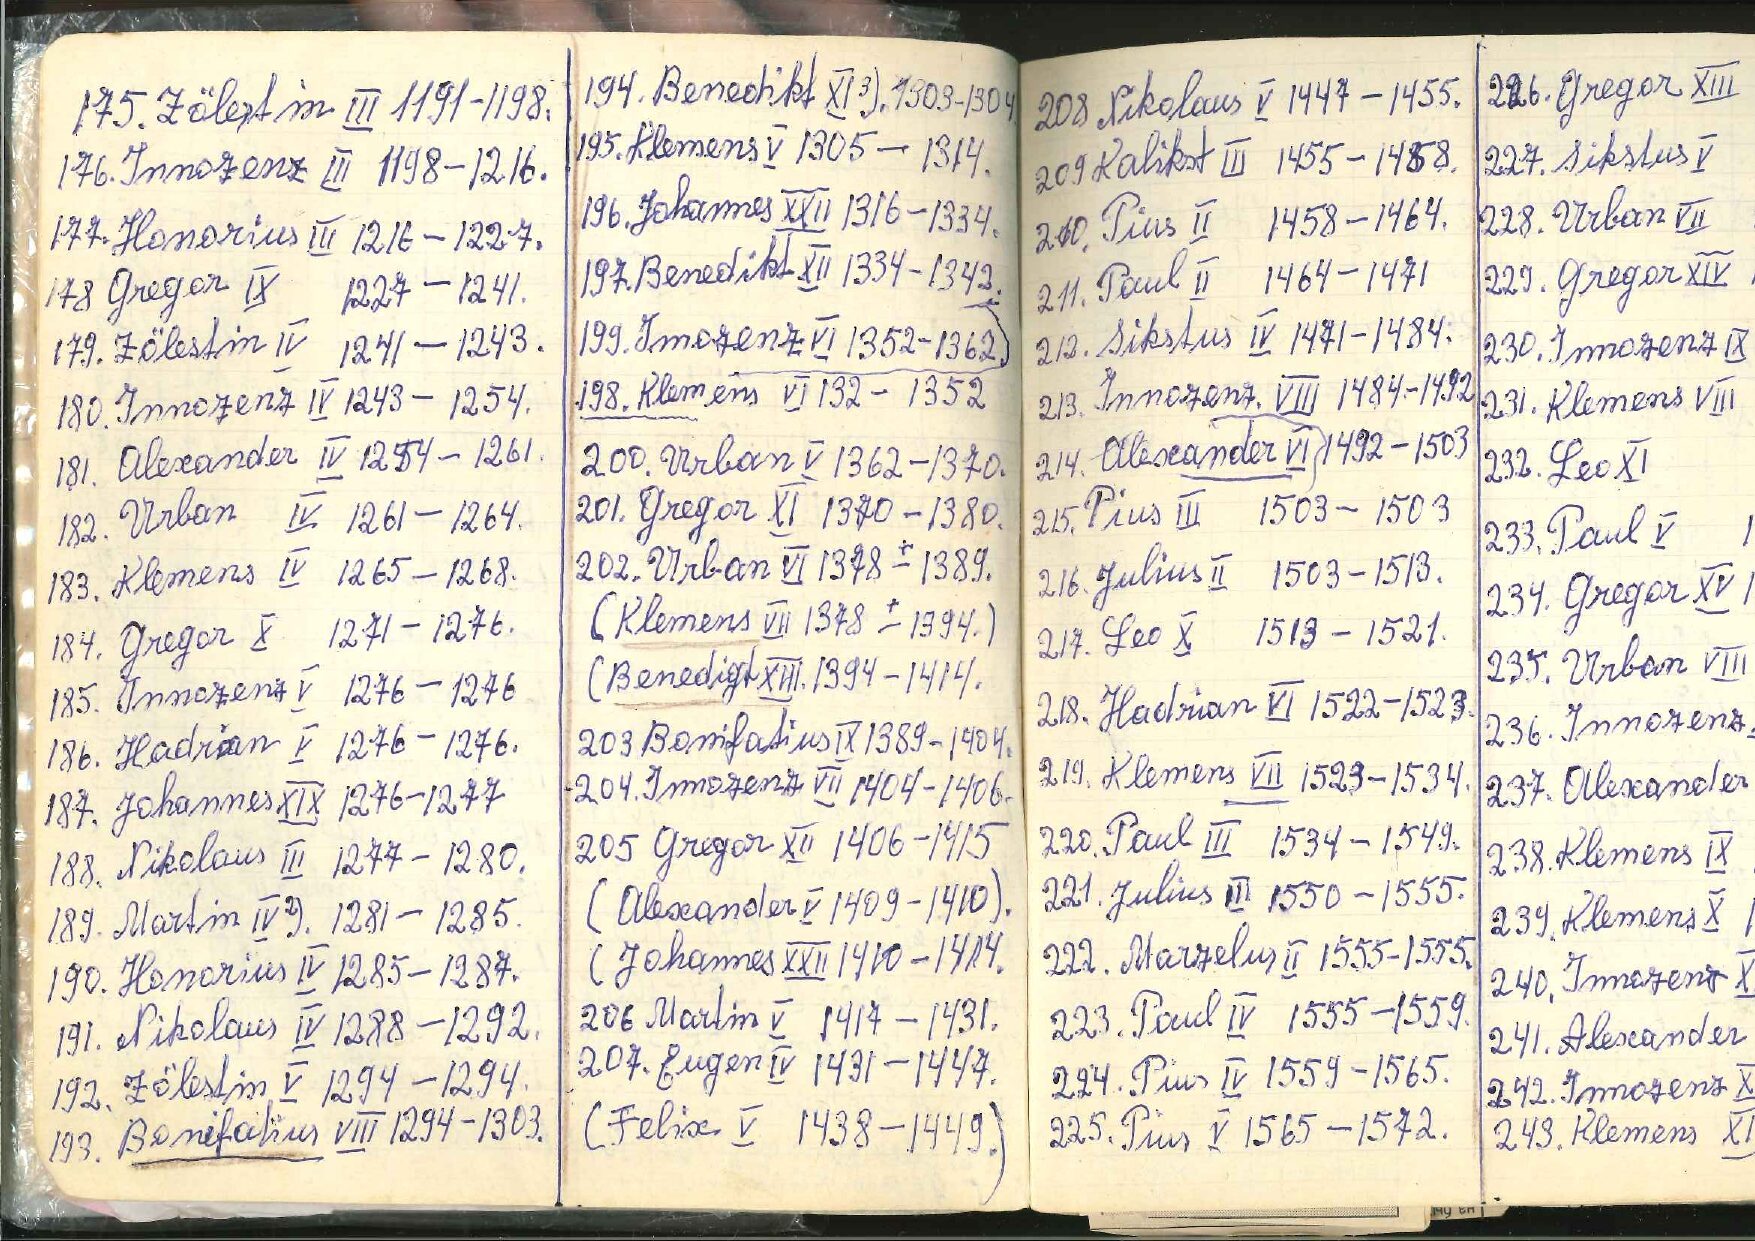 175. Zölestin III 1191-1198.
176. Innozenz III 1198-1216.
177. Honorius III 1216-1227.
178 Gregor IX 1227-1241.
179. Zölestin IV 1241-1243.
180. Innozenz IV 1243-1254.
181. Alexander IV 1254-1261.
182. Urban IV 1261-1264.
183. Klemens IV 1265-1268.
184. Gregor X 1271-1276.
185. Innozenz V 1276-1276
186. Hadrian V 1276-1276.
187. Johannes XIX 1276-1277
188. Nikolaus III 1277-1280.
189. Martin IV 2). 1281-1285.
190. Honorius IV 1285-1287.
191. Nikolaus IV 1288-1292.
192. Zölestin V 1294-1294.
193. Bonifatius VIII 1294-1303.
194. Benedikt XI 3). 1303-1304
195. Klemens V 1305-1314.
196. Johannes XXII 1316-1334.
197. Benedikt XII 1334-1342.
199. Innozenz VI 1352-1362.)
198. Klemens VI 132-1352
200. Urban V 1362-1370.
201. Gregor XI 1370-1380.
202. Urban VI 1378 ± 1389.
(Klemens VII 1378 ± 1394.)
(Benedigt XIII. 1394-1414.
203 Bonifatius IX 1389-1404.
204. Innozenz VII 1404-1406.
205 Gregor XII 1406-1415
(Alexander V 1409-1410).
(Johannes XXII 1410-1414.
206 Martin V 1417-1431.
207. Eugen IV 1431-1447.
(Felix V 1438-1449.)
208 Nikolaus V 1447-1455.
209 Kalikst III 1455-1458.
210. Pius II 1458-1464.
211. Paul II 1464-1471
212. Sikstus IV 1471-1484.
213. Innozenz. VIII 1484-1492
214. Alexander VI) 1492-1503
215. Pius III 1503-1503
216. Julius II 1503-1513.
217. Leo X 1513-1521.
218. Hadrian VI 1522-1523.
219. Klemens VII 1523-1534.
220. Paul III 1534-1549.
221. Julius III 1550-1555.
222. Marzelus II 1555-1555.
223. Paul IV 1555-1559.
224. Pius IV 1559-1565.
225. Pius V 1565-1572.
226. Gregor XIII
227. Sikstus V
228. Urban VII
229. Gregor XIV
230. Innozenz IX
231. Klemens VIII
232. Leo XI
233. Paul V 1
234. Gregor XV 1
235. Urban VIII
236. Innozenz
237. Alexander
238. Klemens IX
239. Klemens X 1
240. Innozenz X
241. Alexander
242. Innozenz X
243. Klemens XI